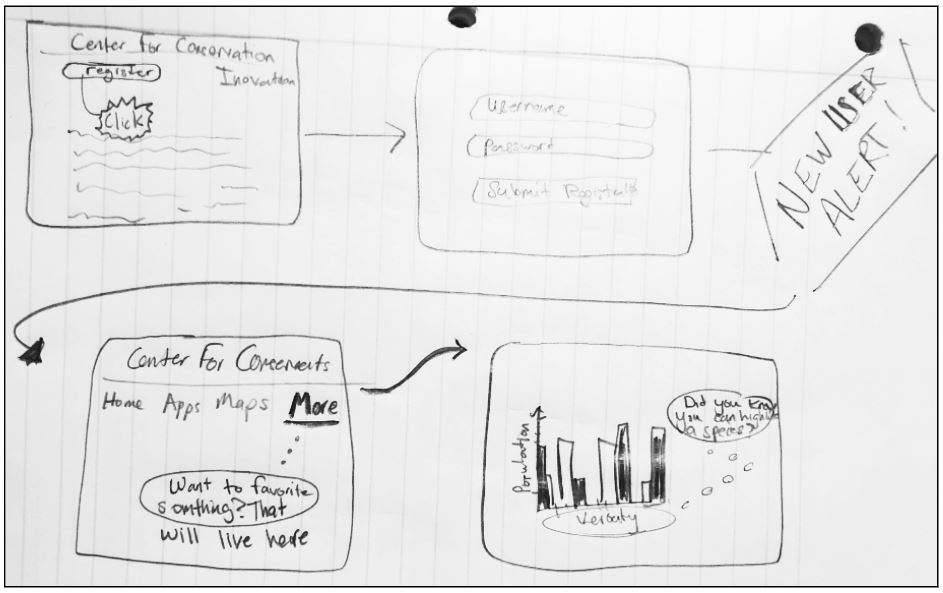 Center For Conservation
Inovation
register
Click
Username
Password
Submit
NEW USER
ALERT!
Center For
Home Apps Maps More
Want to favorite
something? That
will live here
Did you know
you can
a species?
Population